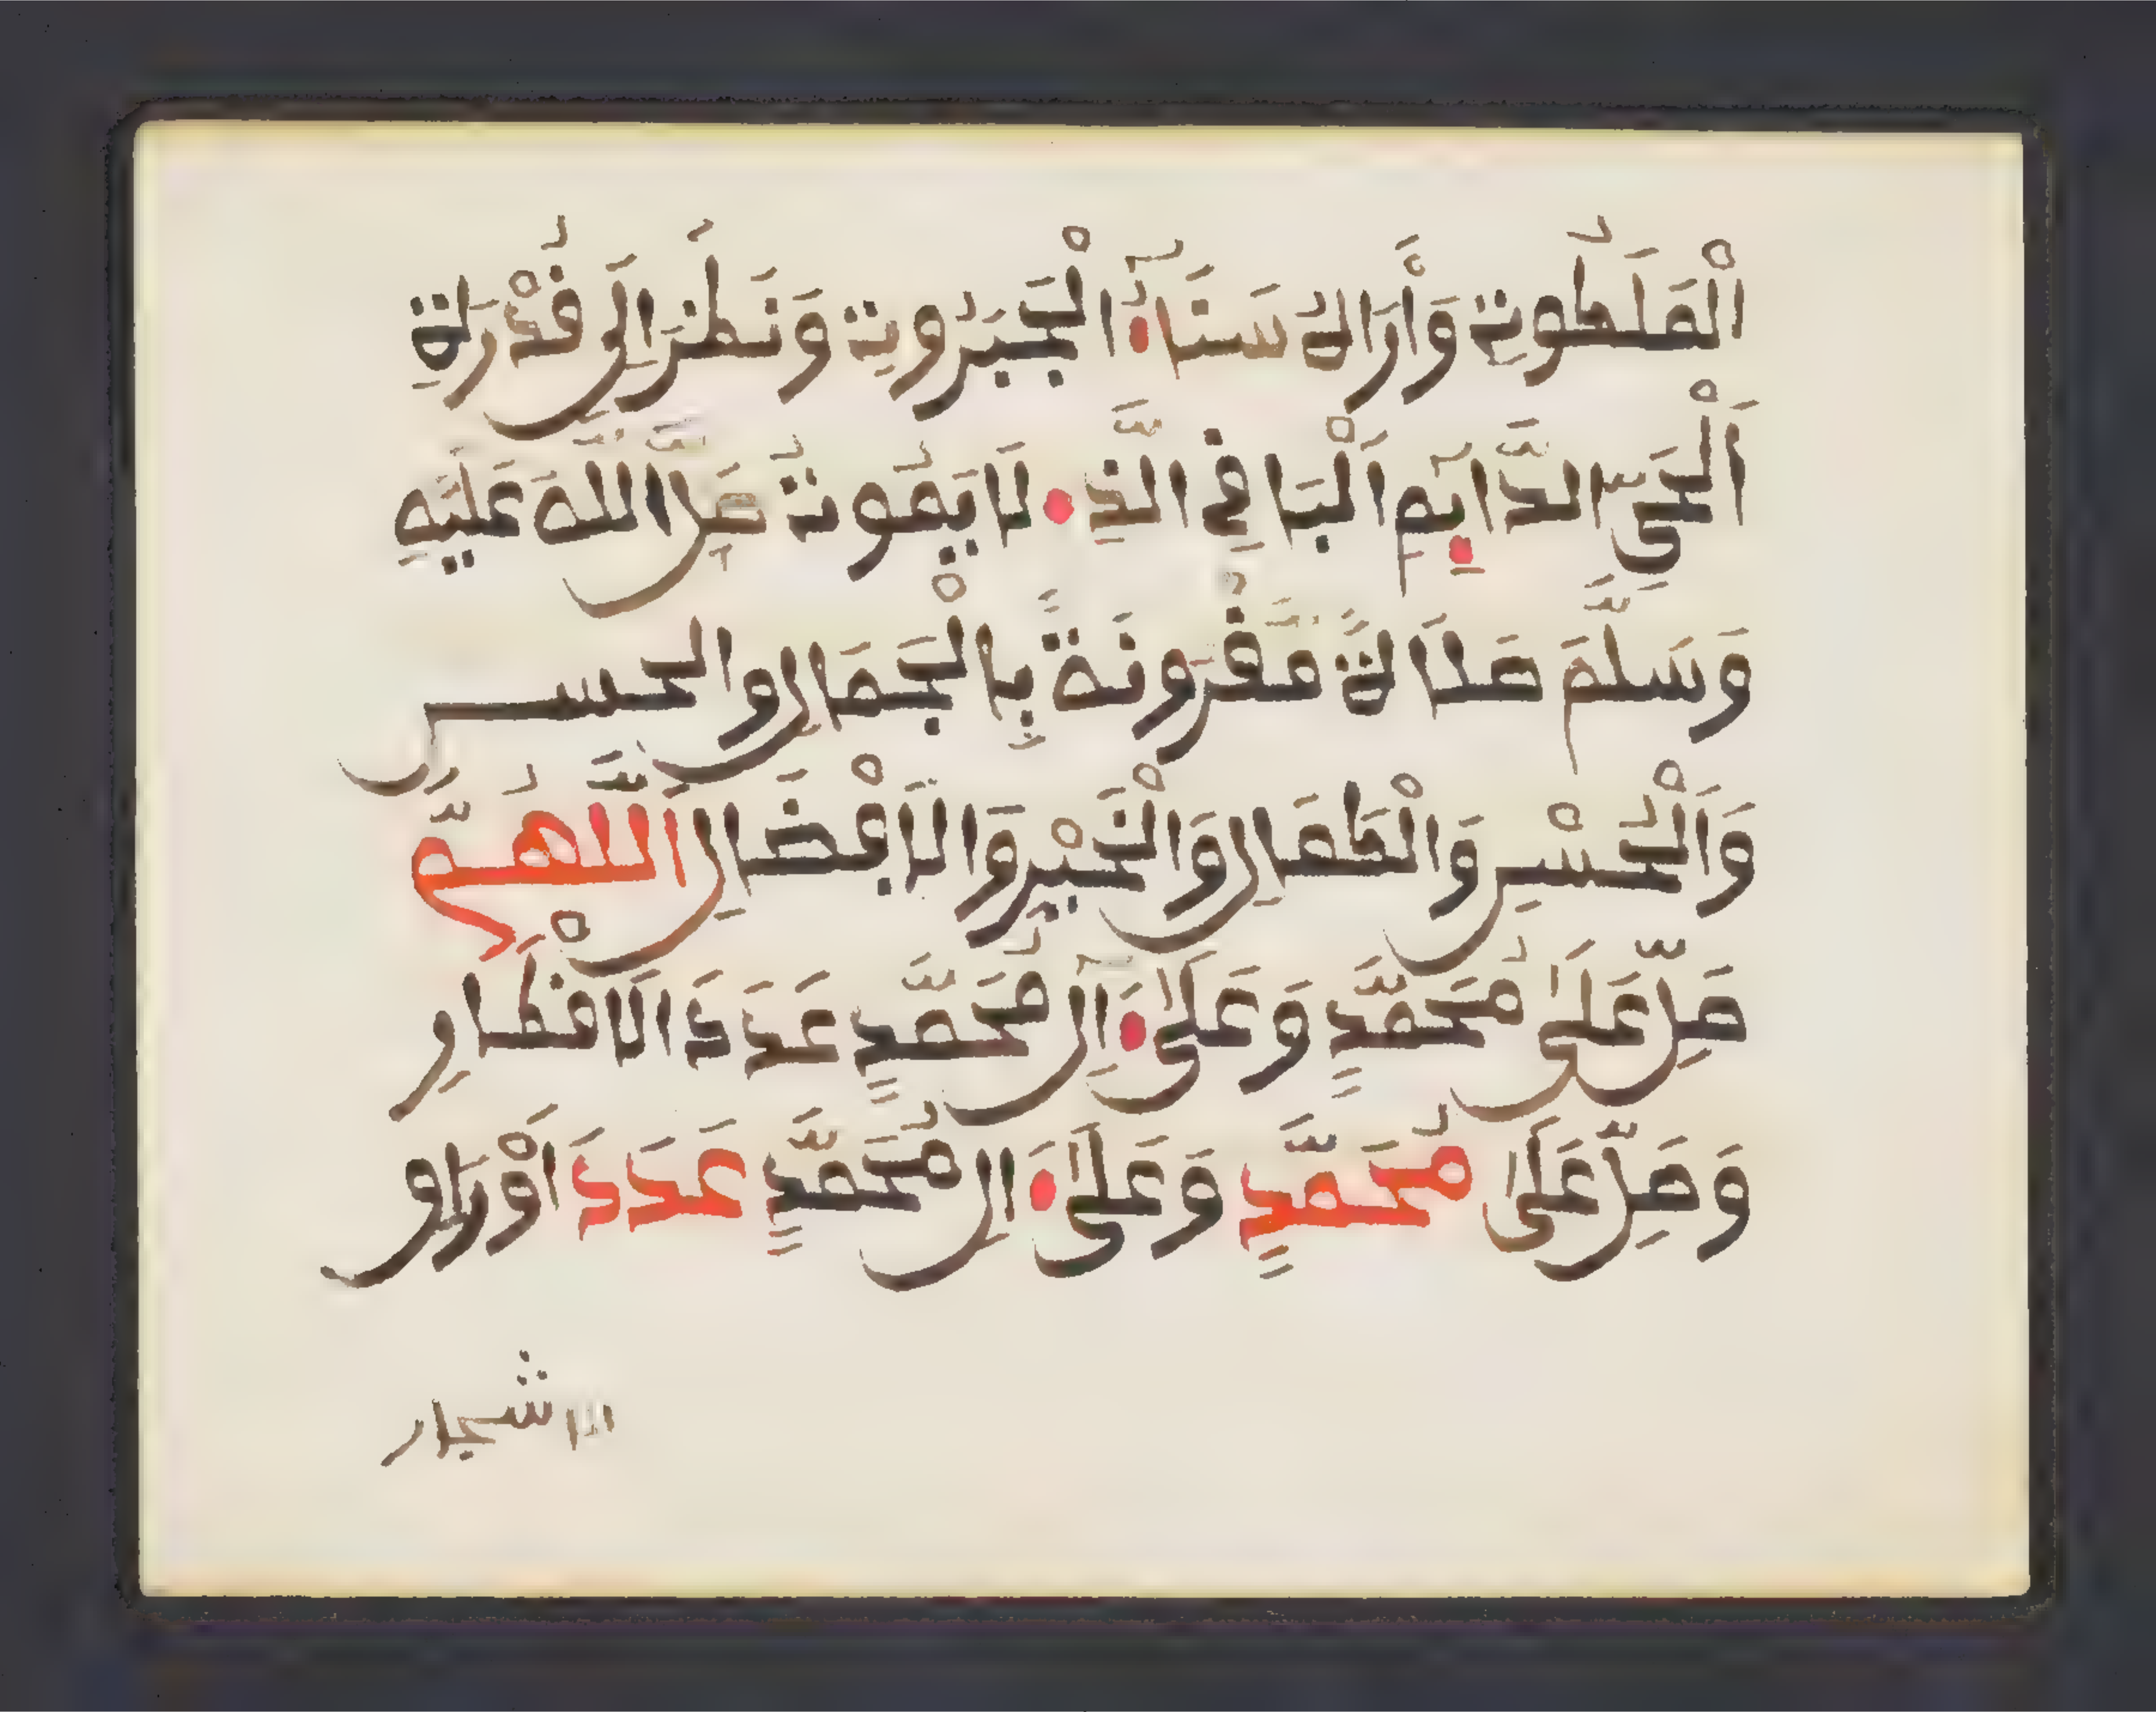 الْمَلَكُوتِ وَأَرَاهُ سَنَآءَ الْجَبَرُوتِ وَنَظَرَ اِلَى قُدْرَةِ
اَلْحَىِّ الدَّآيِمِ اَلْبَافِى الَّذِ لَا يَمُوتُ صَلَّى اللَّهُ عَلَيْهِ
وَسَلَّمَ صَلَاةً مَّقْرُونَةً بِالْجَمَالِ والحسن
وَاَلْحُسْنِ وَالْكَمَالِ وَالْخَيْرِ وَالَافْضَالِ اَللَّهُمَّ
صَلِّ عَلَىٰ مُحَمَّدٍ وَعَلَىٰ ءَالِ مُحَمَّدٍ عَدَدَ الَاقْطَارِ
وَصَلِّ عَلَىٰ مُحَمَّدٍ وَعَلَىٰ ءَالِ مُحَمَّدٍ عَدَدَ اَوْرَاو
الاشجار